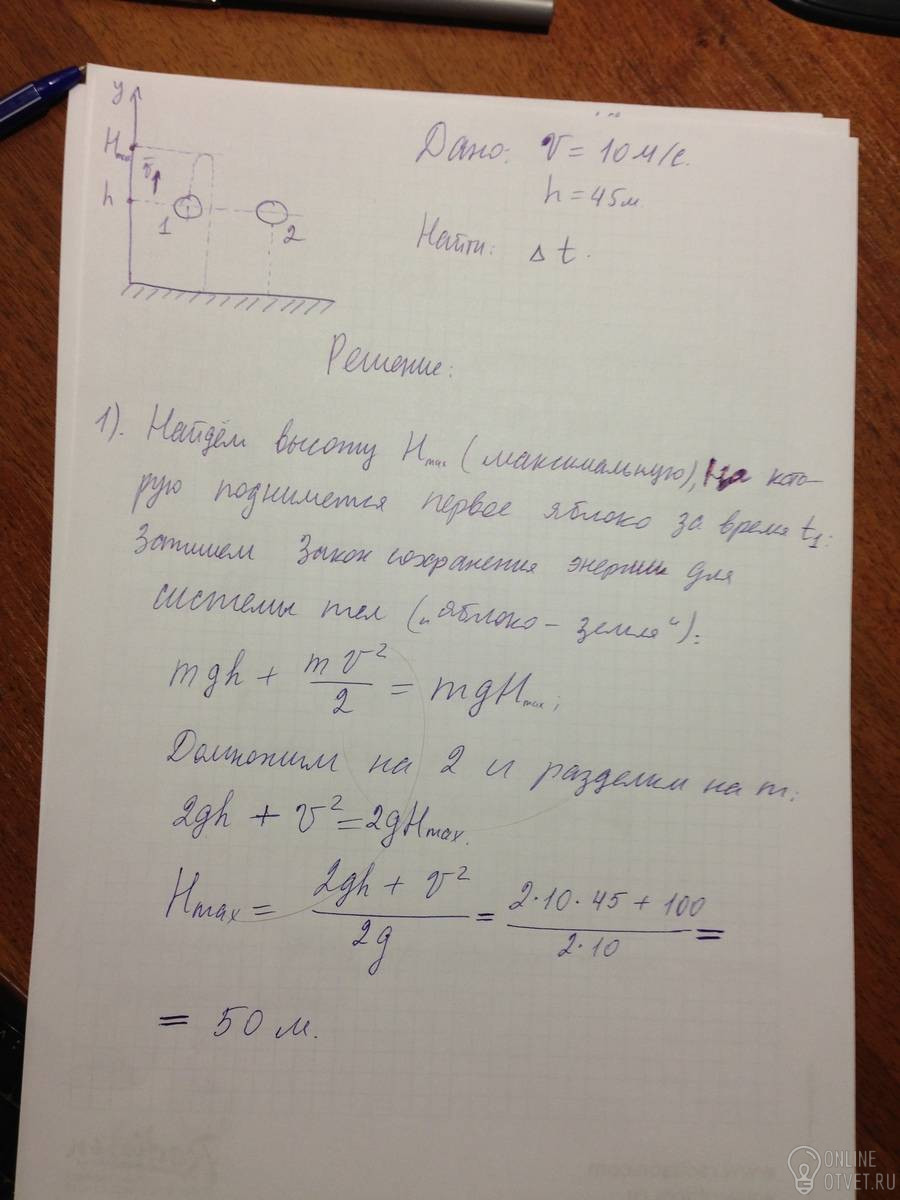 y
Hmax
v
h
1
2
Дано: v = 10 м/с.
h = 45 м
Найти: Δt.
Решение:
1). Найдём высоту Hmax (максимальную), на кото-
рую поднимется первое яблоко за время t1:
Запишем Закон сохранения энергии для
системы тел („яблоко – земля“):
mgh + mv²/2 = mgHmax;
Домножим на 2 и разделим на m:
2gh + v² = 2gHmax.
Hmax = (2gh + v²)/2g = (2·10·45 + 100)/2·10 =
= 50 м.
ONLINE
OTVET.RU